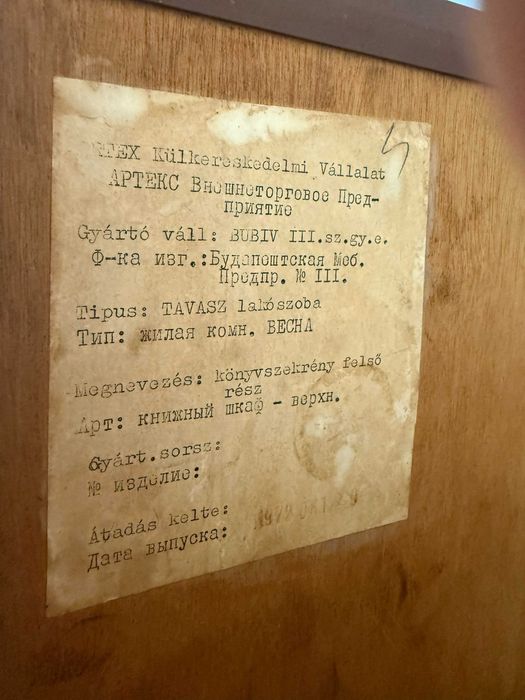 ARTEX Külkereskedelmi Vállalat
АРТЕКС Внешнеторговое Пред-
приятие
Gyártó váll: BUBIV III.sz.gy.e.
Ф-ка изг.:Будапештская Меб.
Предпр. № III.
Tipus: TAVASZ lakószoba
Тип: жилая комн. ВЕСНА
Megnevezés: könyvszekrény felső
rész
Арт: книжный шкаф - верхн.
Gyárt.sorsz:
№ изделие:
Átadás kelte:
Дата выпуска: